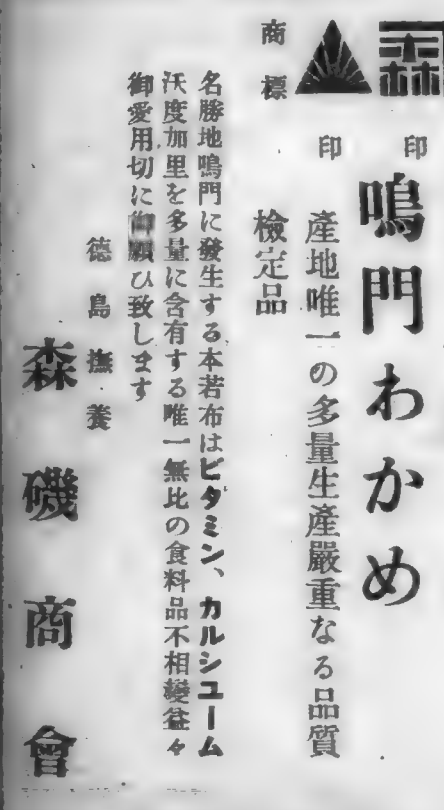 印
鳴門わかめ
印
産地唯一の多量生産嚴重なる品質
檢定品
商標
名勝地鳴門に發生する本若布はビタミン、カルシユーム
沃度加里を多量に含有する唯一無比の食料品不相變益々
御愛用切に御願ひ致します
徳島撫養
森磯商會